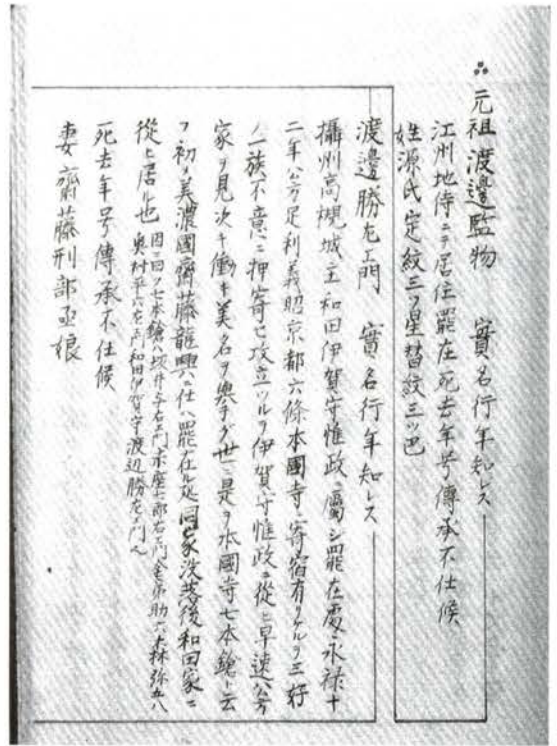 元祖渡邊監物　實名行年知レス
江州地侍ニテ居住罷在死去年号傳承不仕候
姓源氏定紋三ツ星替紋三ツ巴
渡邊勝左エ門　實名行年知レス
攝州高槻城主和田伊賀守惟政ニ屬シ罷在處永禄十
二年公方足利義昭京都六條本國寺ニ寄宿有リケルヲ三好
ノ一族不意ニ押寄セ攻立ツルヲ伊賀守惟政ニ從ヒ早速公方
家ヲ見次キ働キ美名ヲ擧ケグ世ニ是ヲ本國寺七本鎗ト云
フ初メ美濃國齋藤龍興ニ仕ヘ罷在ル処同家没落後和田家ニ
從ヒ居ル也
因ニ曰ク七本鎗ハ坂井与右エ門赤座七郎右エ門金弟助六大林弥五八
奥村平六左エ門和田伊賀守渡辺勝左エ門ヘ
死去年号傳承不仕候
妻齋藤刑部丞娘